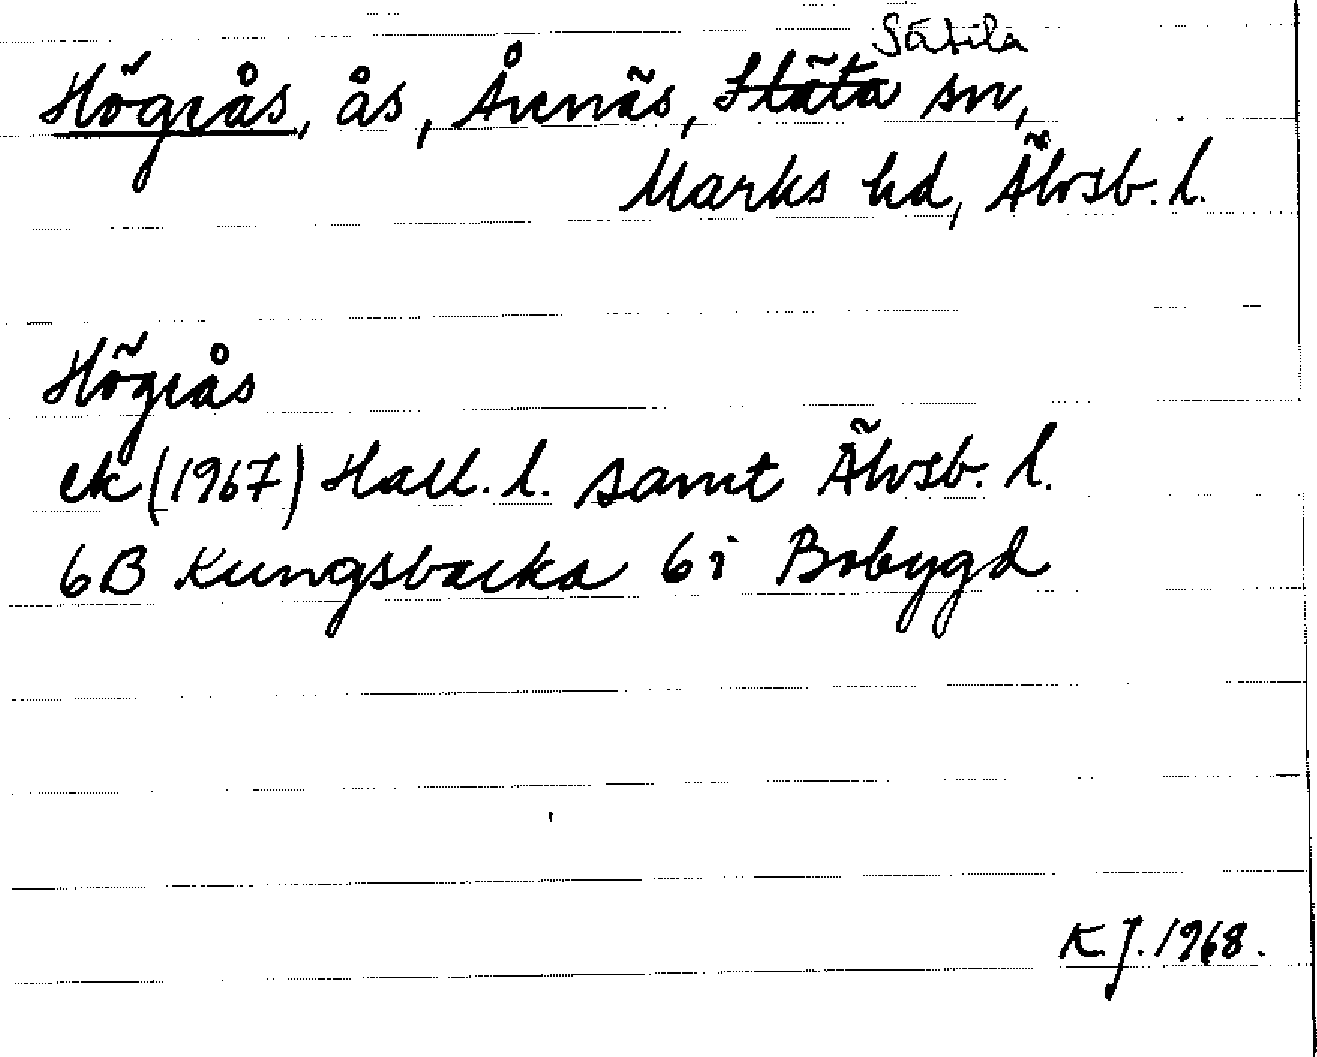 Sätila
Högeås, ås, Årenäs, Stäta sn,
Marks hd, Älvsb. l.
Högeås
ek (1967) Hall. l. samt Älvsb. l.
6B Kungsbacka 6i Bobygd
K.J. 1968.